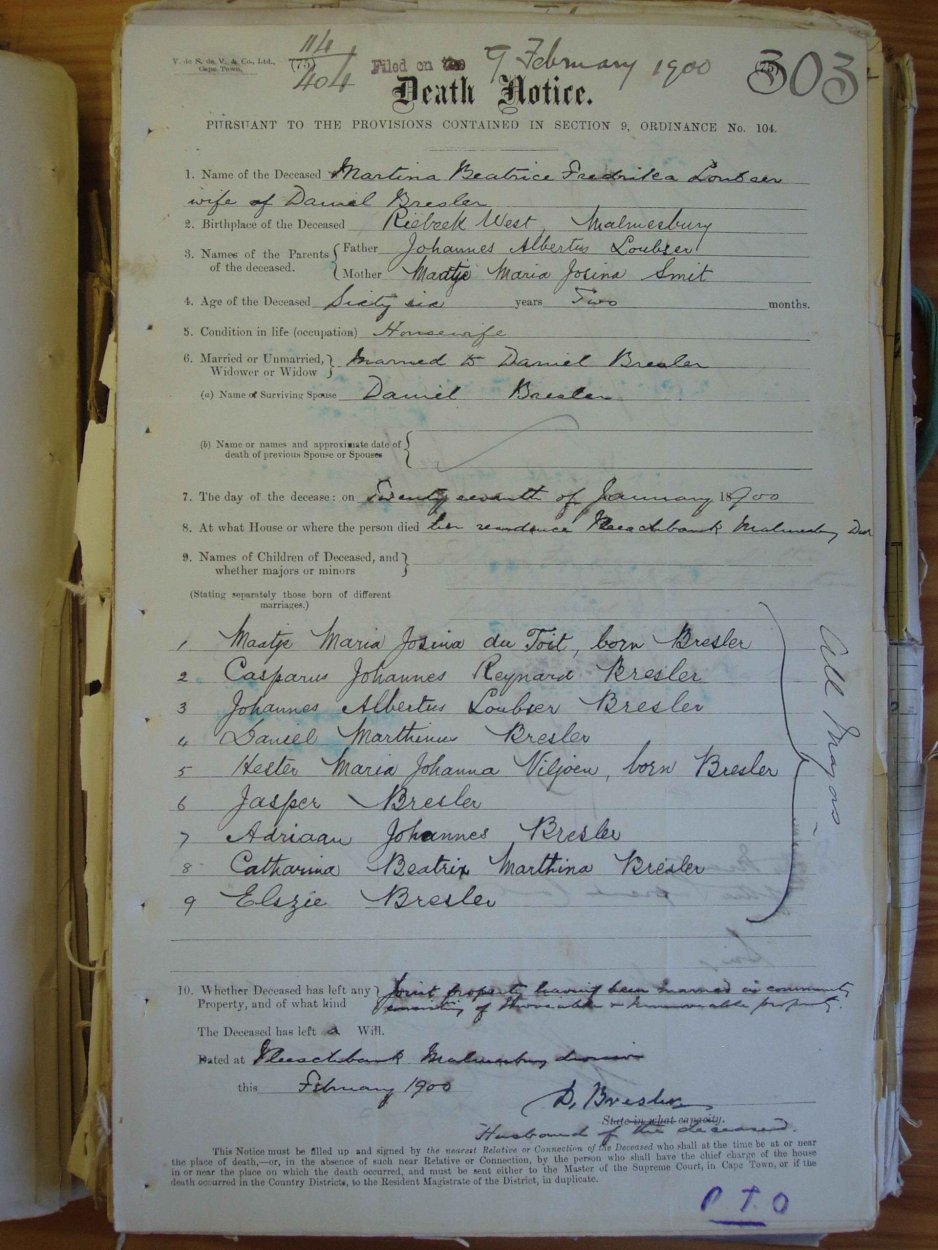 V. de S. de V. & Co., Ltd.,
Cape Town.
(75) 114/404
Filed on the 9 February 1900
(75) 303
Death Notice.
PURSUANT TO THE PROVISIONS CONTAINED IN SECTION 9, ORDINANCE No. 104.
1. Name of the Deceased Martina Beatrice Fredrika Loubser
wife of Daniel Bresler
2. Birthplace of the Deceased Riebeek West, Malmesbury
3. Names of the Parents of the deceased. { Father Johannes Albertus Loubser
Mother Maatje Maria Josina Smit
4. Age of the Deceased Sixty six years Two months.
5. Condition in life (occupation) Housewife
6. Married or Unmarried, Widower or Widow } Married to Daniel Bresler
(a) Name of Surviving Spouse Daniel Bresler
(b) Name or names and approximate date of death of previous Spouse or Spouses {
7. The day of the decease: on Twenty seventh of January 1900
8. At what House or where the person died her residence Vleeschbank Malmesbury
9. Names of Children of Deceased, and whether majors or minors }
(Stating separately those born of different marriages.)
1 Maatje Maria Josina du Toit, born Bresler
2 Casparus Johannes Reynard Bresler
3 Johannes Albertus Loubser Bresler
4 Daniel Marthinus Bresler
5 Hester Maria Johanna Viljoen, born Bresler
6 Jasper Bresler
7 Adriaan Johannes Bresler
8 Catharina Beatrix Marthina Bresler
9 Elszie Bresler
All Majors
10. Whether Deceased has left any Property, and of what kind } Joint property having been married in community
consisting of Moveable & Immovable property.
The Deceased has left a Will.
Dated at Vleeschbank Malmesbury division
this February 1900
D. Bresler
State in what capacity.
Husband of the deceased.
This Notice must be filled up and signed by the nearest Relative or Connection of the Deceased who shall at the time be at or near
the place of death,—or, in the absence of such near Relative or Connection, by the person who shall have the chief charge of the house
in or near the place on which the death occurred, and must be sent either to the Master of the Supreme Court, in Cape Town, or if the
death occurred in the Country Districts, to the Resident Magistrate of the District, in duplicate.
P T O